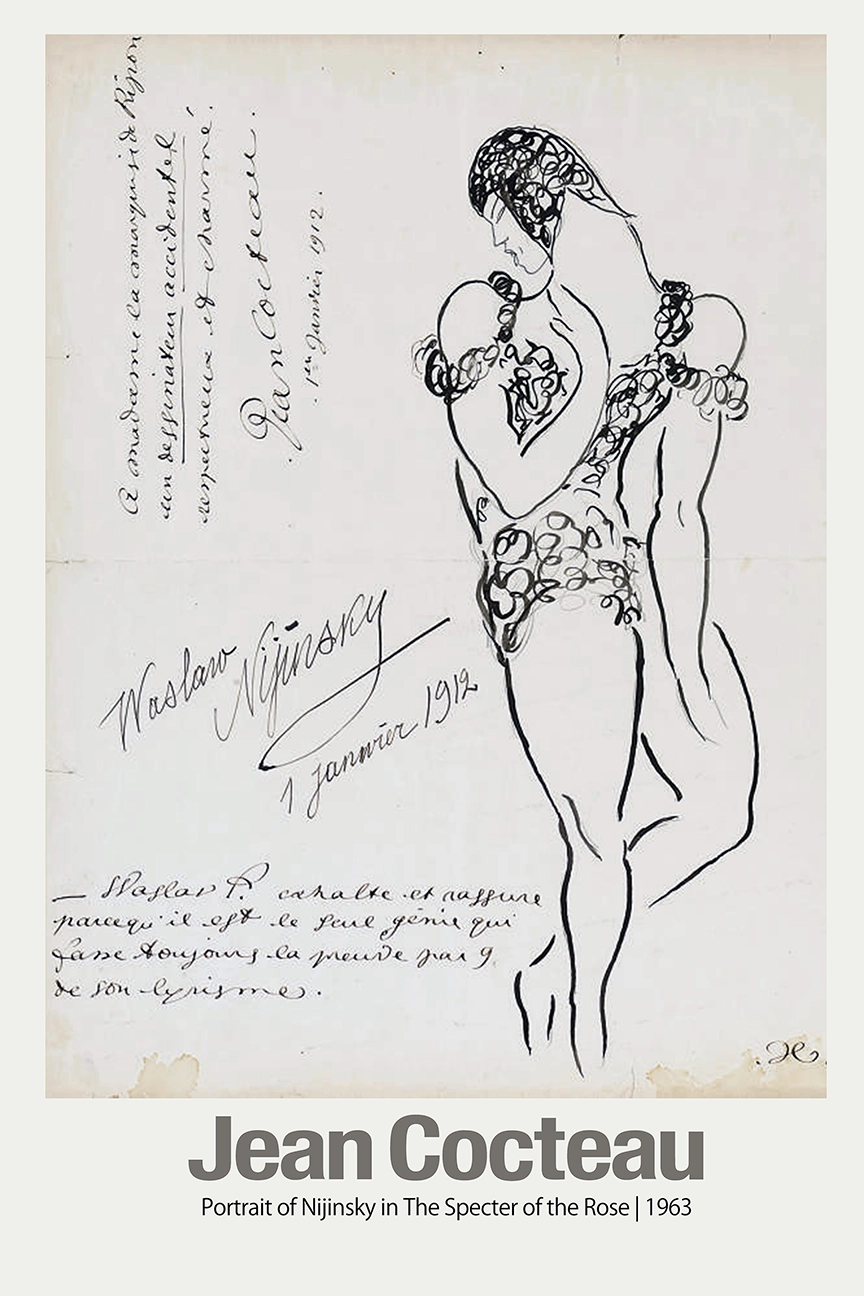 A madame la marquise de Ripon
un dessinateur accidentel
respectueux et charmé.
Jean Cocteau.
. 1er Janvier 1912.
Waslaw Nijinsky
1 janwier 1912
— Waslav N. exhalte et rassure
parcequ'il est le seul génie qui
fasse toujours la preuve par 9
de son lyrisme.
.JC.
Jean Cocteau
Portrait of Nijinsky in The Specter of the Rose | 1963